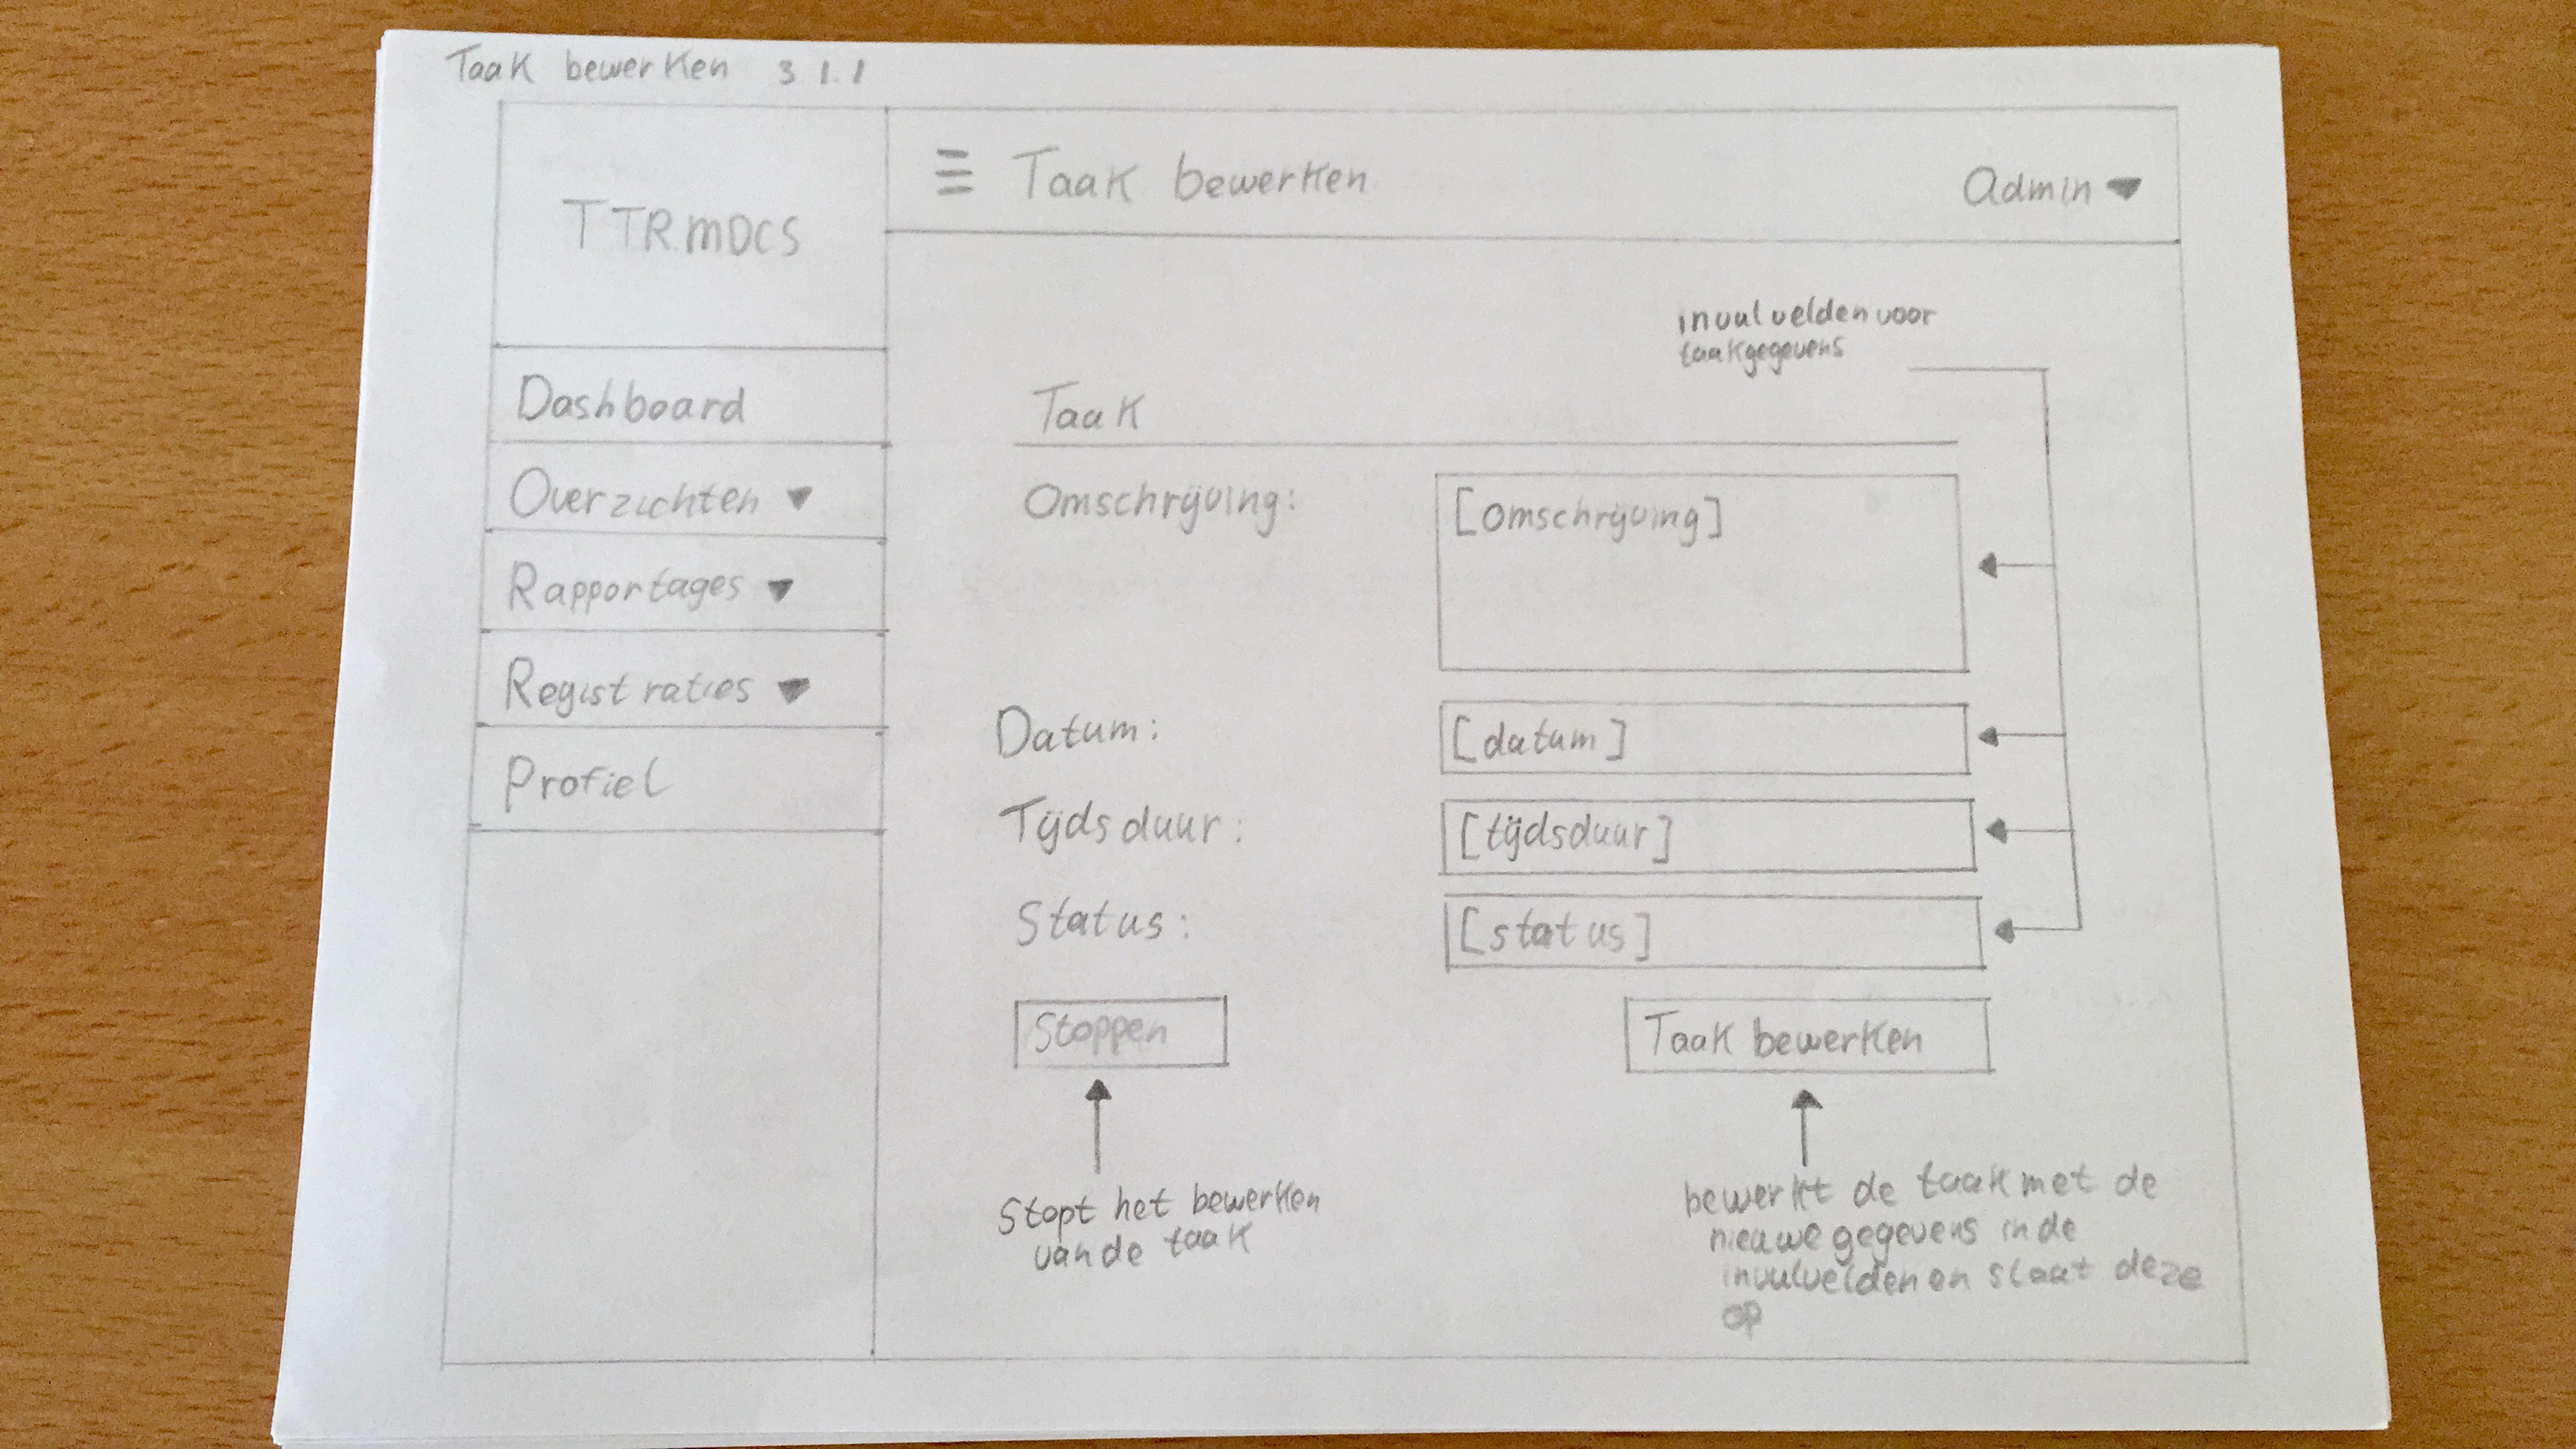 Taak bewerken 3.1.1
TTRMDCS
☰ Taak bewerken
Admin ▼
Dashboard
Overzichten ▼
Rapportages ▼
Registraties ▼
Profiel
invulvelden voor
taakgegevens
Taak
Omschrijving:
[omschrijving]
Datum:
[datum]
Tijdsduur:
[tijdsduur]
Status:
[status]
Stoppen
Taak bewerken
Stopt het bewerken
van de taak
bewerkt de taak met de
nieuwe gegevens in de
invulvelden en slaat deze
op